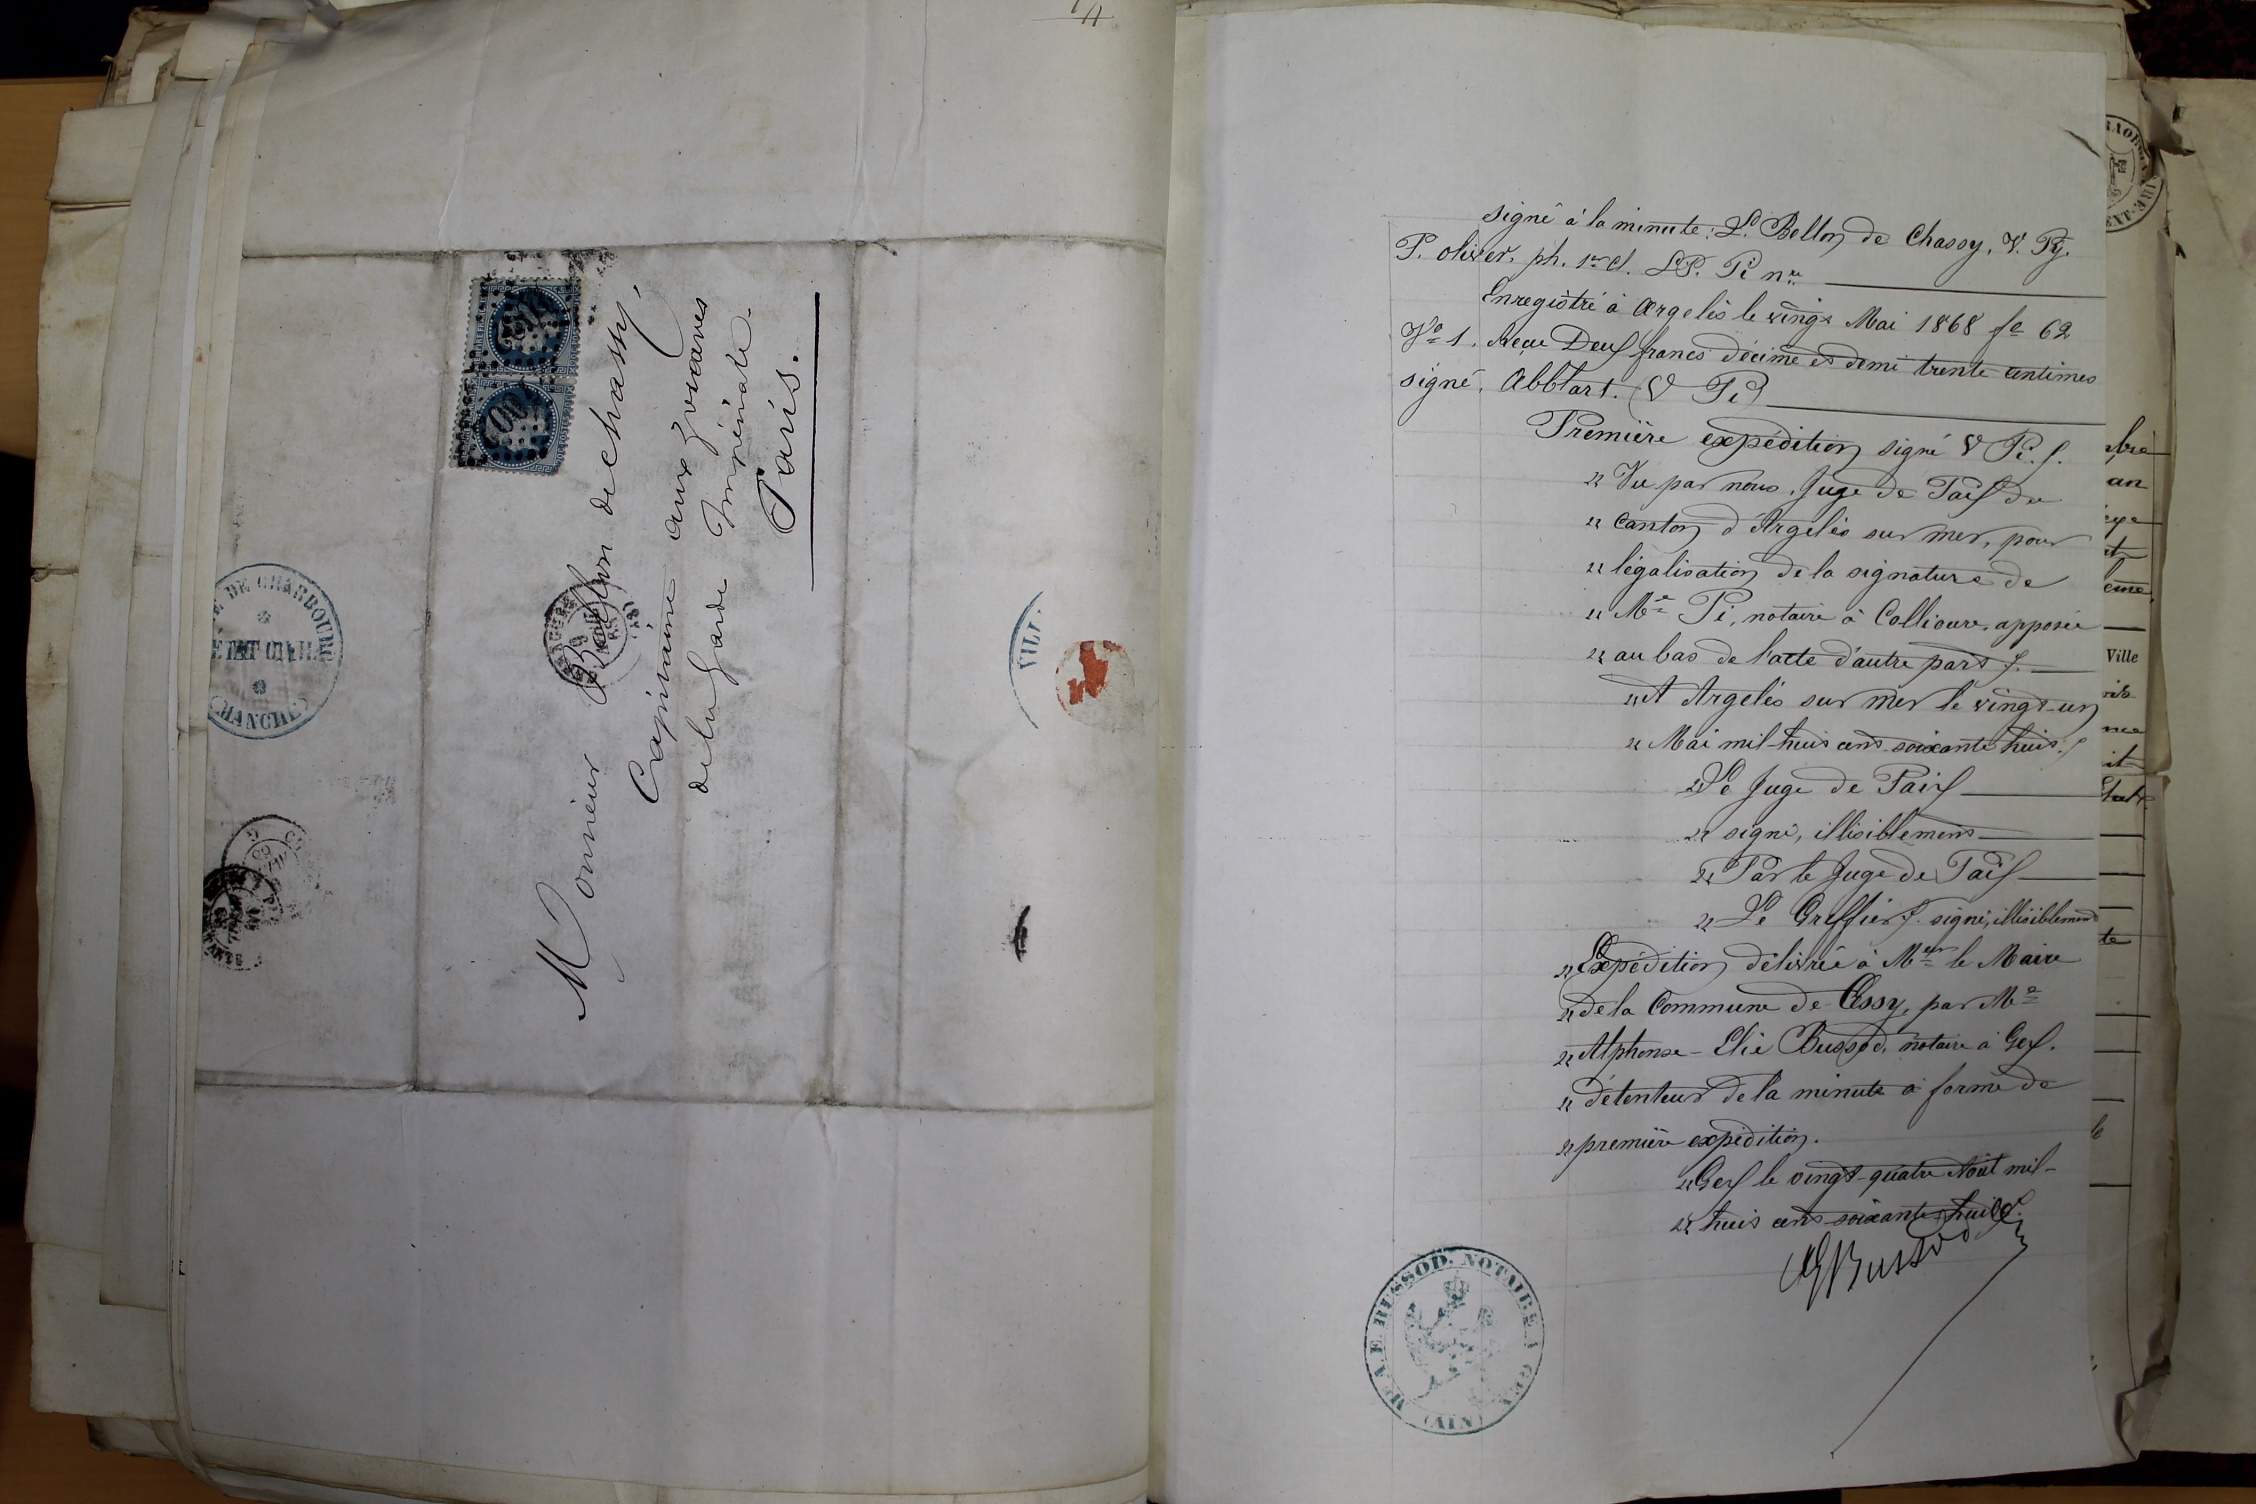 Monsieur Bellon de chassy,
Capitaine aux Zouaves
de la Garde Impériale.
Paris.
DE CHARBOURG
ETAT CIVIL
(MANCHE)
VILL
signé à la minute: Ld Bellon de Chassy, V. Py.
P. olivier. ph. 1re cl. LP. Pi nre
Enregistré à Argelès le vingt Mai 1868 fo 62
Vo 1. Reçu Deux francs décime et demi trente centimes
signé, Abblart. V Pi
Première expédition signé V Pi.
" Vu par nous, Juge de Paix du
" Canton d'Argelès sur mer, pour
" légalisation de la signature de
" Me Pi, notaire à Collioure, apposée
" au bas de l'acte d'autre part.
" A Argelès sur mer le vingt-un
" Mai mil-huit cent-soixante-huit.
" Le Juge de Paix
" signé, illisiblement
" Par le Juge de Paix
" Le Greffier. signé, illisiblement
" Expédition délivrée à Mr le Maire
" de la Commune de Cessy, par Me
" Alphonse-Elie Bussod, notaire à Gex.
" détenteur de la minute à forme de
" première expédition.
" Gex le vingt-quatre Août mil-
" huit cent-soixante-huit.
AE Bussod
Me A.E. BUSSOD, NOTAIRE A GEX (AIN)
an
Ville